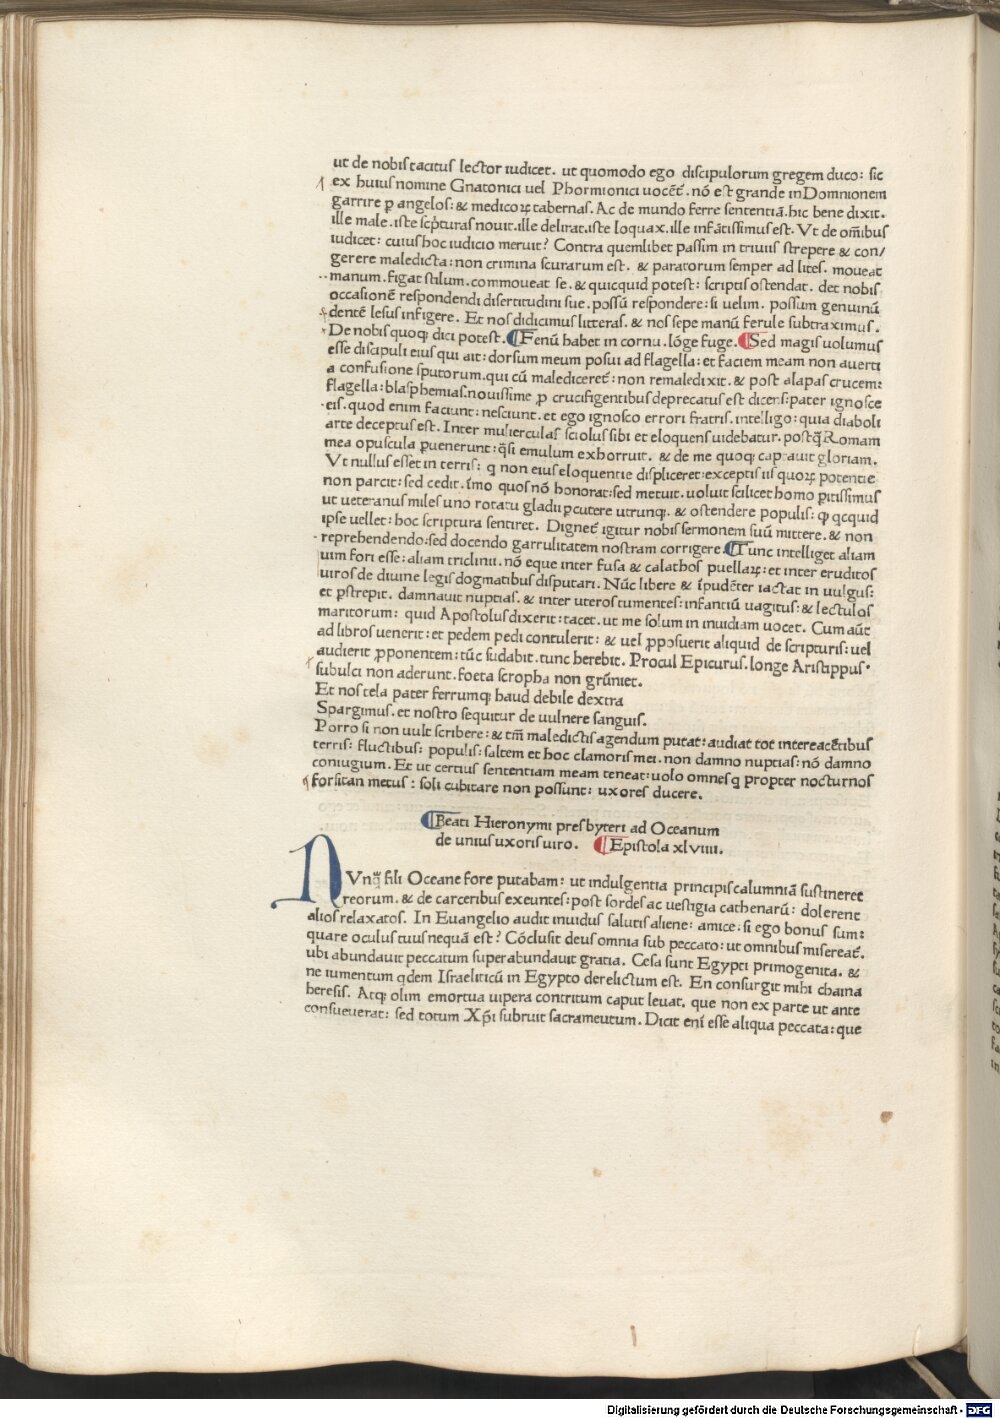 ut de nobis tacitus lector iudicet. ut quomodo ego discipulorum gregem duco: sic
ex huius nomine Gnatonici uel Phormionici uocẽt̃. nõ est grande in Domnionem
garrire ꝑ angelos: & medicoꝝ tabernas. Ac de mundo ferre sententiã. hic bene dixit.
ille male. iste scp̃turas nouit. ille delirat. iste loquax. ille infãtissimus est. Vt de om̃ibus
iudicet: cuius hoc iudicio meruit? Contra quemlibet passim in triuiis strepere & con/
gerere maledicta: non crimina scurarum est. & paratorum semper ad lites. moueat
manum. figat stilum. commoueat se. & quicquid potest: scriptis ostendat. det nobis
occasionẽ respondendi disertitudini sue. possũ respondere: si uelim. possum genuinũ
dentẽ lesus infigere. Et nos didicimus litteras. & nos sepe manũ ferule subtraximus.
De nobis quoqꝫ dici potest. ¶ Fenũ habet in cornu. lõge fuge. ¶ Sed magis uolumus
esse discipuli eius qui ait: dorsum meum posui ad flagella: et faciem meam non auerti
a confusione sputorum. qui cũ malediceret̃: non remaledixit. & post alapas crucem:
flagella: blasphemias. nouissime ꝓ crucifigentibus deprecatus est dicens: pater ignosce
eis. quod enim faciunt: nesciunt. et ego ignosco errori fratris. intelligo: quia diaboli
arte deceptus est. Inter mulierculas sciolus sibi et eloquens uidebatur. postq̃ Romam
mea opuscula ꝑuenerunt: q̃si emulum exhorruit. & de me quoqꝫ captauit gloriam.
Vt nullus esset in terris: q non eius eloquentie displiceret: exceptis iis quoꝝ potentie
non parcit: sed cedit. ĩmo quos nõ honorat: sed metuit. uoluit scilicet homo ꝑitissimus
ut ueteranus miles uno rotatu gladii ꝑcutere utrunqꝫ. & ostendere populis: ꝙ qcquid
ipse uellet: hoc scriptura sentiret. Dignet̃ igitur nobis sermonem suũ mittere. & non
reprehendendo: sed docendo garrulitatem nostram corrigere. ¶ Tunc intelliget aliam
uim fori esse: aliam triclinii. nõ eque inter fusa & calathos puellaꝝ: et inter eruditos
uiros de diuine legis dogmatibus disputari. Nũc libere & ĩpudẽter iactat in uulgus:
et ꝑstrepit. damnauit nuptias. & inter uteros tumentes: infantiũ uagitus: & lectulos
maritorum: quid Apostolus dixerit: tacet. ut me solum in inuidiam uocet. Cum aũt
ad libros uenerit: et pedem pedi contulerit: & uel ꝓposuerit aliquid de scripturis: uel
audierit ꝓponentem: tũc sudabit. tunc herebit. Procul Epicurus. longe Aristippus.
subulci non aderunt. foeta scropha non grũniet.
Et nos tela pater ferrumqꝫ haud debile dextra
Spargimus. et nostro sequitur de uulnere sanguis.
Porro si non uult scribere: & tm̃ maledictis agendum putat: audiat tot intereacẽtibus
terris: fluctibus: populis: saltem et hoc clamoris mei. non damno nuptias: nõ damno
coniugium. Et ut certius sententiam meam teneat: uolo omnes q propter nocturnos
forsitan metus: soli cubitare non possunt: uxores ducere.
¶ Beati Hieronymi presbyteri ad Oceanum
de unius uxoris uiro. ¶ Epistola xlviiii.
NVnq̃ fili Oceane fore putabam: ut indulgentia principis calumniã sustineret
reorum. & de carceribus exeuntes: post sordes ac uestigia cathenarũ: dolerent
alios relaxatos. In Euangelio audit inuidus salutis aliene: amice: si ego bonus sum:
quare oculus tuus nequã est? Cõclusit deus omnia sub peccato: ut omnibus misereat̃.
ubi abundauit peccatum superabundauit gratia. Cesa sunt Egypti primogenita. &
ne iumentum qdem Israeliticũ in Egypto derelictum est. En consurgit mihi chaina
heresis. Atqꝫ olim emortua uipera contritum caput leuat. que non ex parte ut ante
consueuerat: sed totum Xp̃i subruit sacrameutum. Dicit eni᷒ esse aliqua peccata: que
Digitalisierung gefördert durch die Deutsche Forschungsgemeinschaft - DFG